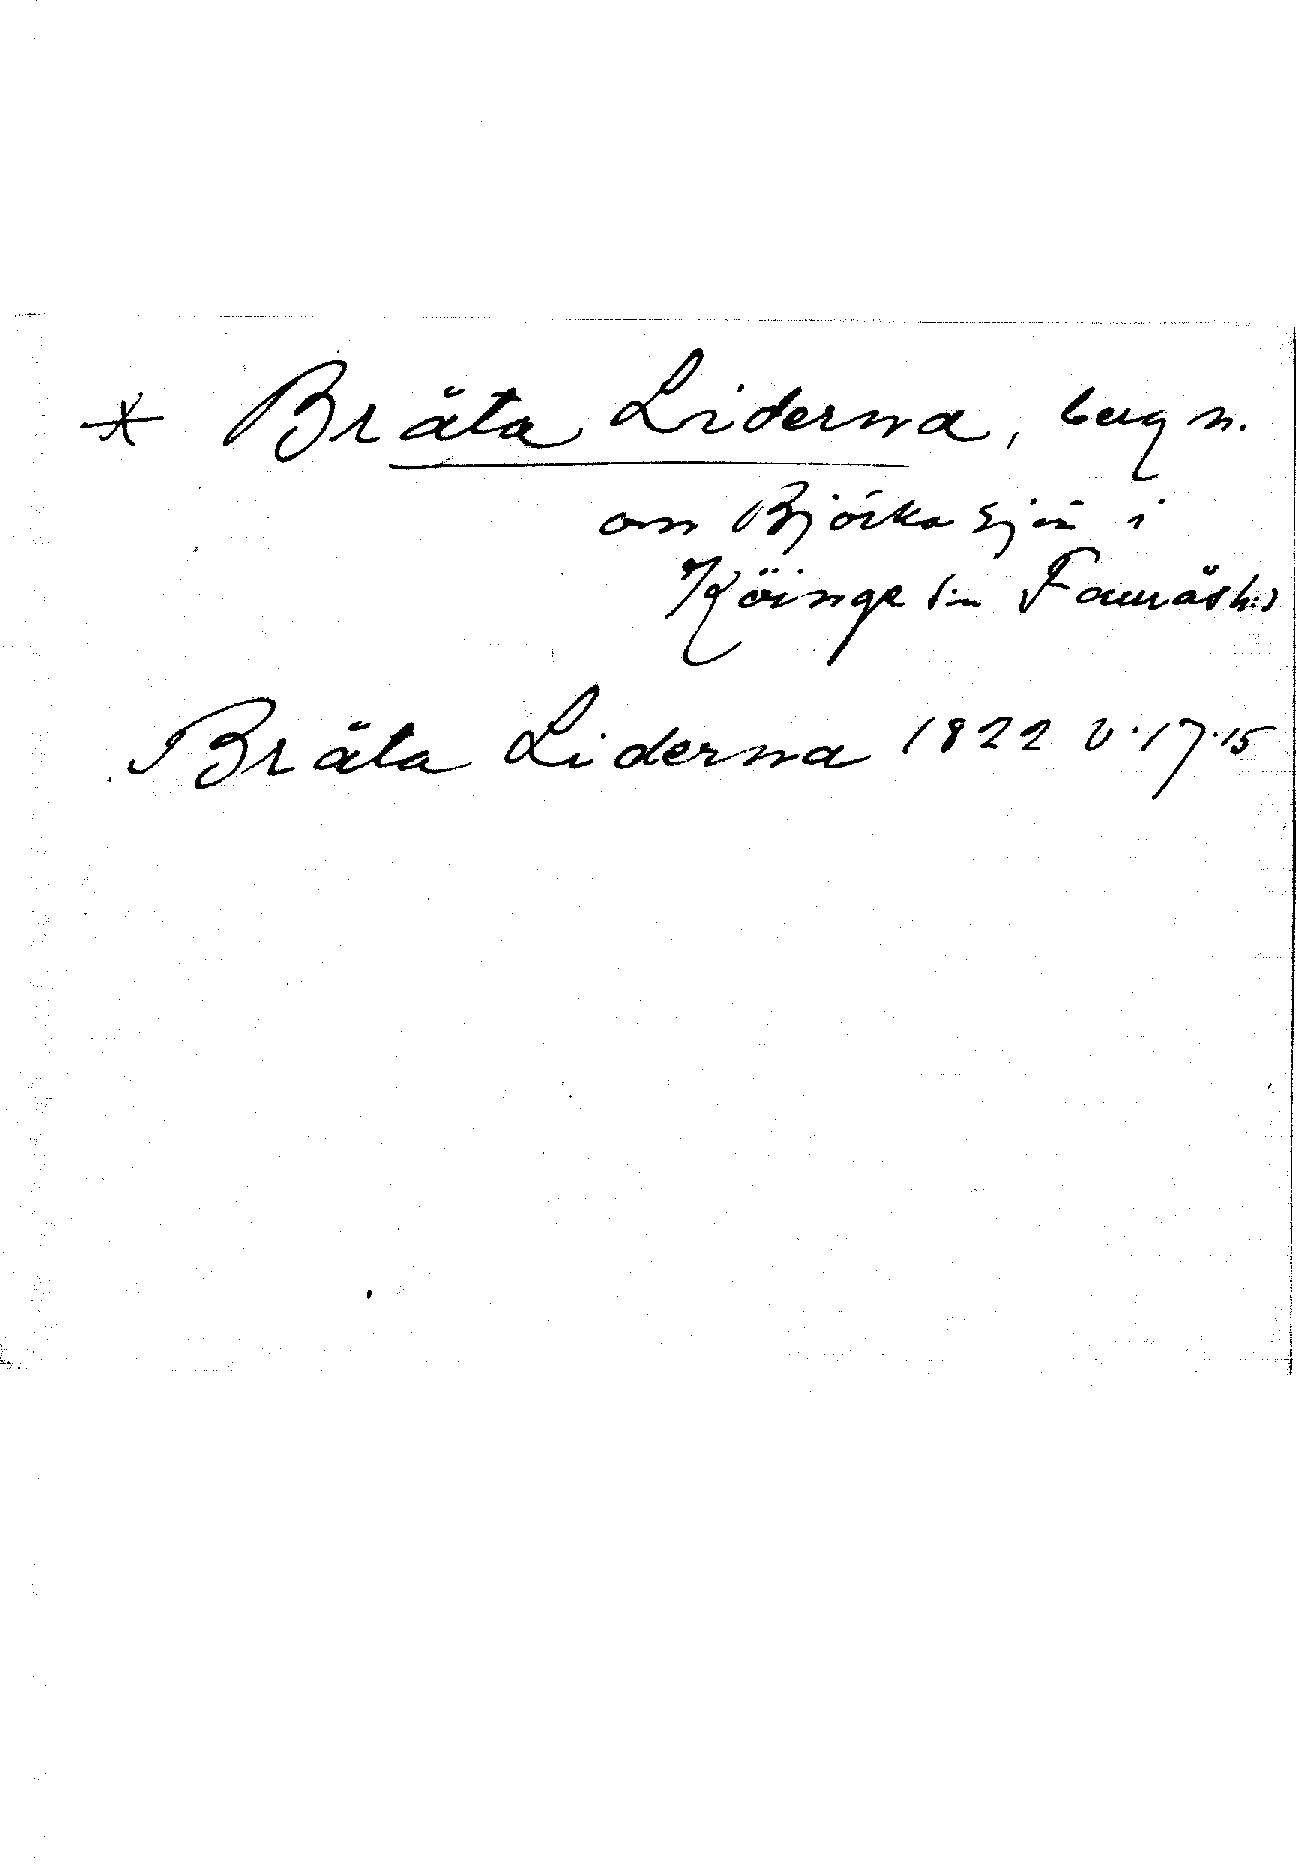 * Bräta Liderna, berg n.
om Björka sjön i
Köinge sn Fauråsh:d
Bräta Liderna 1822 V.17.15